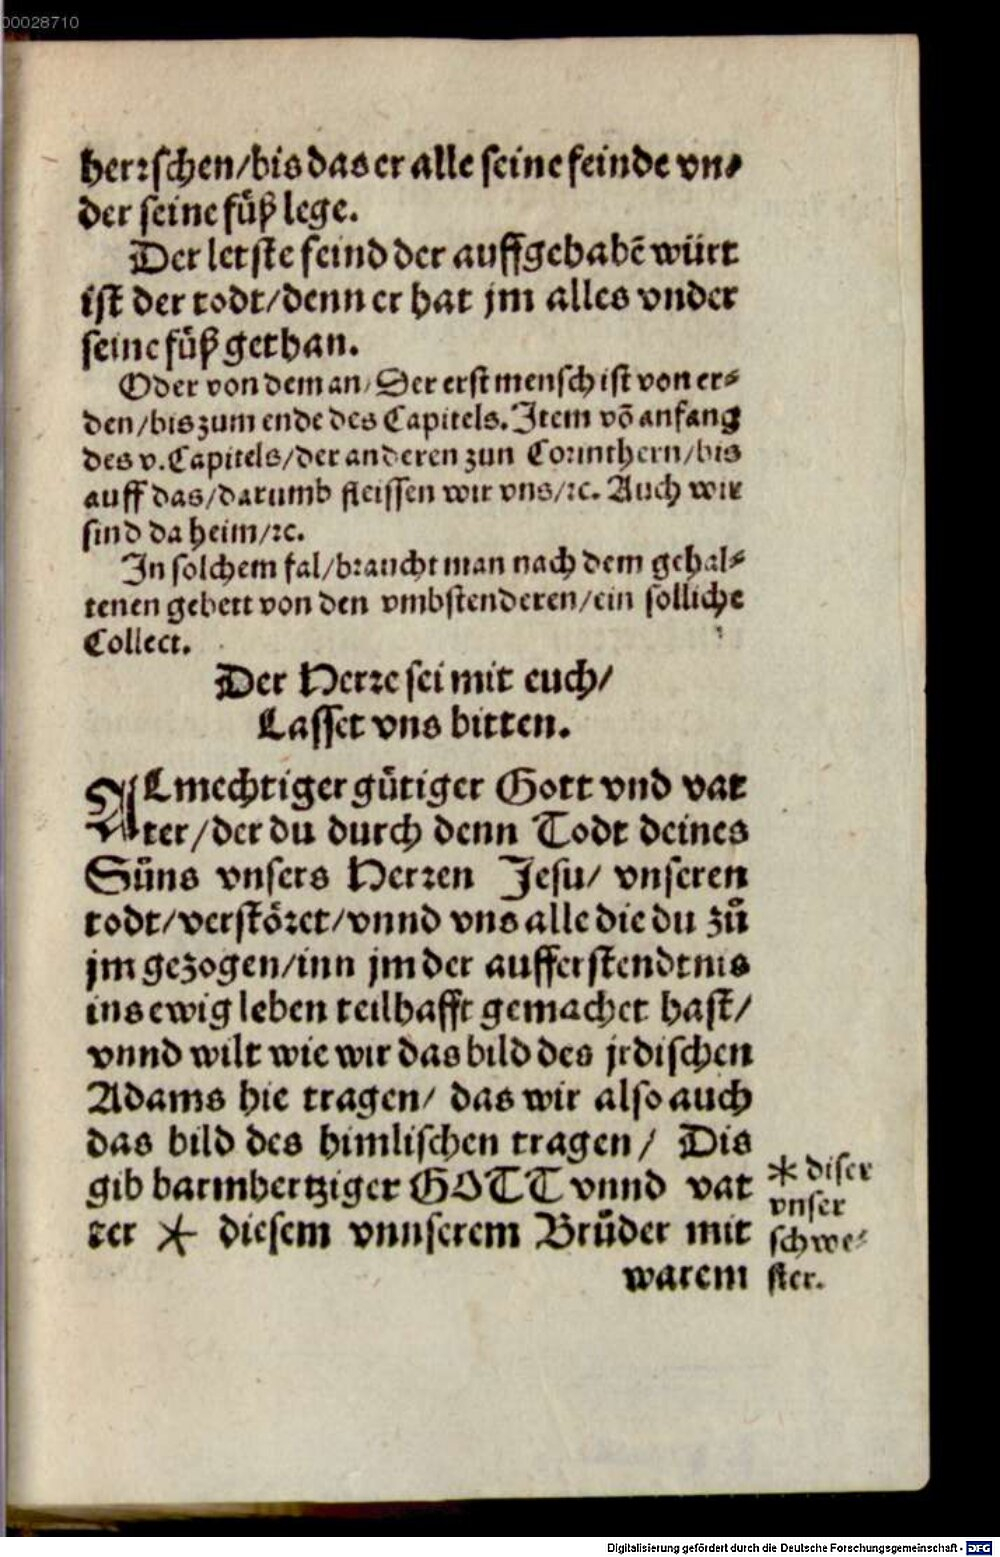 00028710
herrschen/bis das er alle seine feinde vn-
der seine fůß lege.
Der letste feind der auffgehabē würt
ist der todt/denn er hat jm alles vnder
seine fůß gethan.
Oder von dem an/Der erst mensch ist von er-
den/bis zum ende des Capitels. Item vō anfang
des v. Capitels/der anderen zun Corinthern/bis
auff das/darumb fleissen wir vns/ꝛc. Auch wir
sind da heim/ꝛc.
In solchem fal/braucht man nach dem gehal-
tenen gebett von den vmbstenderen/ein solliche
Collect.
Der Herre sei mit euch/
Lasset vns bitten.
ALmechtiger gůtiger Gott vnd vat
ter/der du durch denn Todt deines
Sůns vnsers Herren Jesu/ vnseren
todt/verstőret/vnnd vns alle die du zů
jm gezogen/inn jm der aufferstendtnis
ins ewig leben teilhafft gemachet hast/
vnnd wilt wie wir das bild des jrdischen
Adams hie tragen/ das wir also auch
das bild des himlischen tragen/ Dis
gib barmhertziger GOTT vnnd vat
ter * diesem vnnserem Brůder mit
warem
* diser
vnser
schwe-
ster.
Digitalisierung gefördert durch die Deutsche Forschungsgemeinschaft - DFG